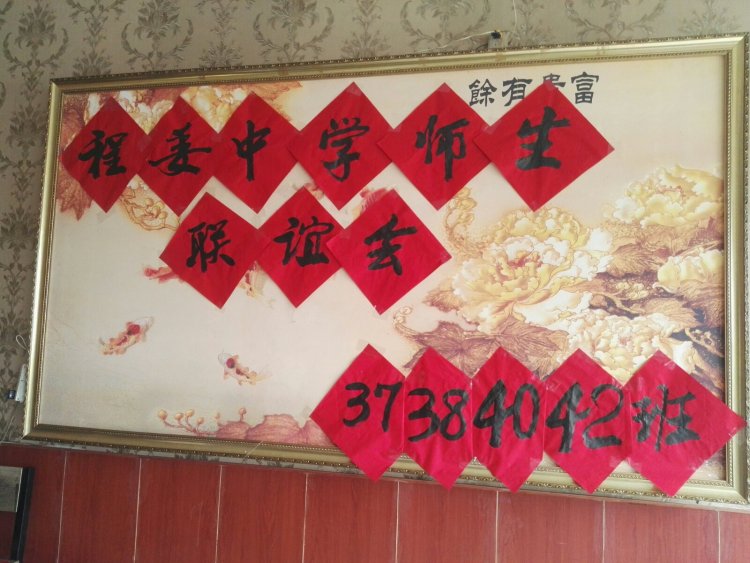 富貴有餘
程姜中学师生
联谊会
37 38 40 42班